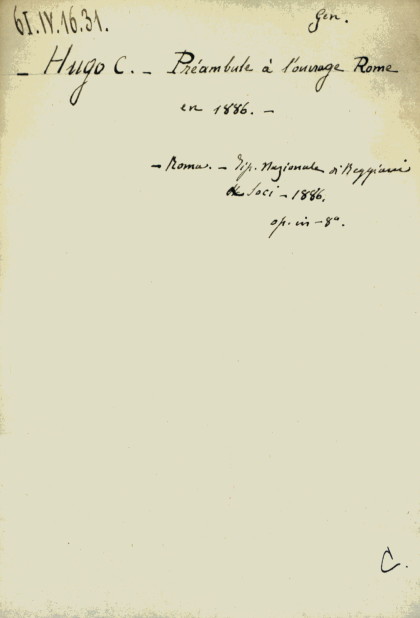 61.IV.16.31.
Gen.
- Hugo C. - Préambule à l'ouvrage Rome
en 1886. -
- Roma. - Tip. Nazionale di Reggiani
& Soci - 1886.
op. in - 8º.
C.